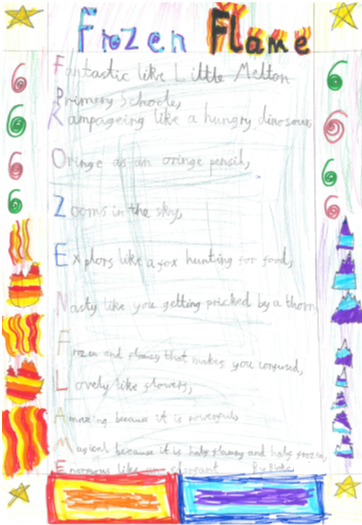 Frozen Flame
Fantastic like Little Melton
Primary School,
Rampageing like a hungry dinosour
Oringe as an oringe pencil,
Zooms in the sky,
Explors like a fox hunting for food,
Nasty like you getting pricked by a thorn
Frozen and flamey that makes you confused,
Lovely like flowers,
Amazing because it is powerful,
Magical because it is half flamey and half frozen,
Enormous like an elephant By